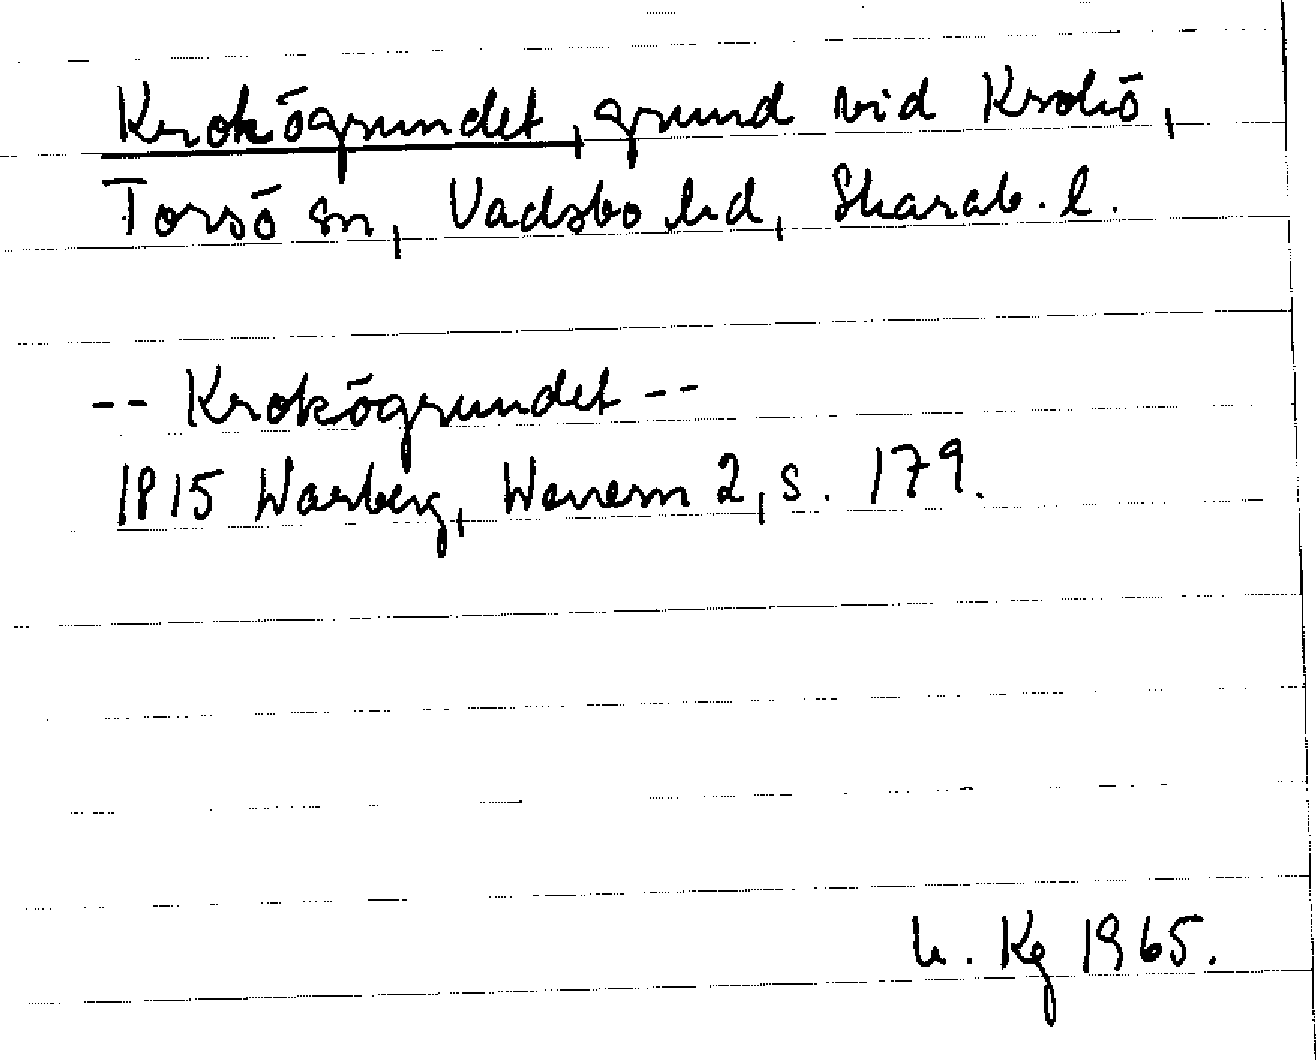 Krokögrundet, grund vid Krokö,
Torsö sn, Vadsbo hd, Skarab. l.
-- Krokögrundet --
1815 Warberg, Wenern 2, s. 179.
Kg 1965.